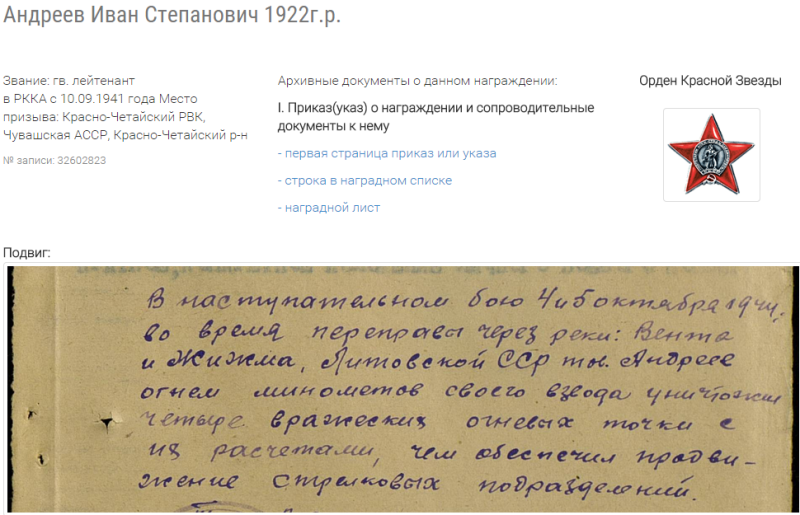 Андреев Иван Степанович 1922г.р.
Звание: гв. лейтенант
в РККА с 10.09.1941 года Место
призыва: Красно-Четайский РВК,
Чувашская АССР, Красно-Четайский р-н
№ записи: 32602823
Архивные документы о данном награждении:
I. Приказ(указ) о награждении и сопроводительные
документы к нему
- первая страница приказ или указа
- строка в наградном списке
- наградной лист
Орден Красной Звезды
Подвиг:
В наступательном бою 4 и 5 октября 1944г.
во время переправы через реки: Вента
и Жижма, Литовской ССР тов. Андреев
огнем минометов своего взвода уничтожил
четыре вражеских огневых точки с
их расчетами, чем обеспечил продви-
жение стрелковых подразделений.